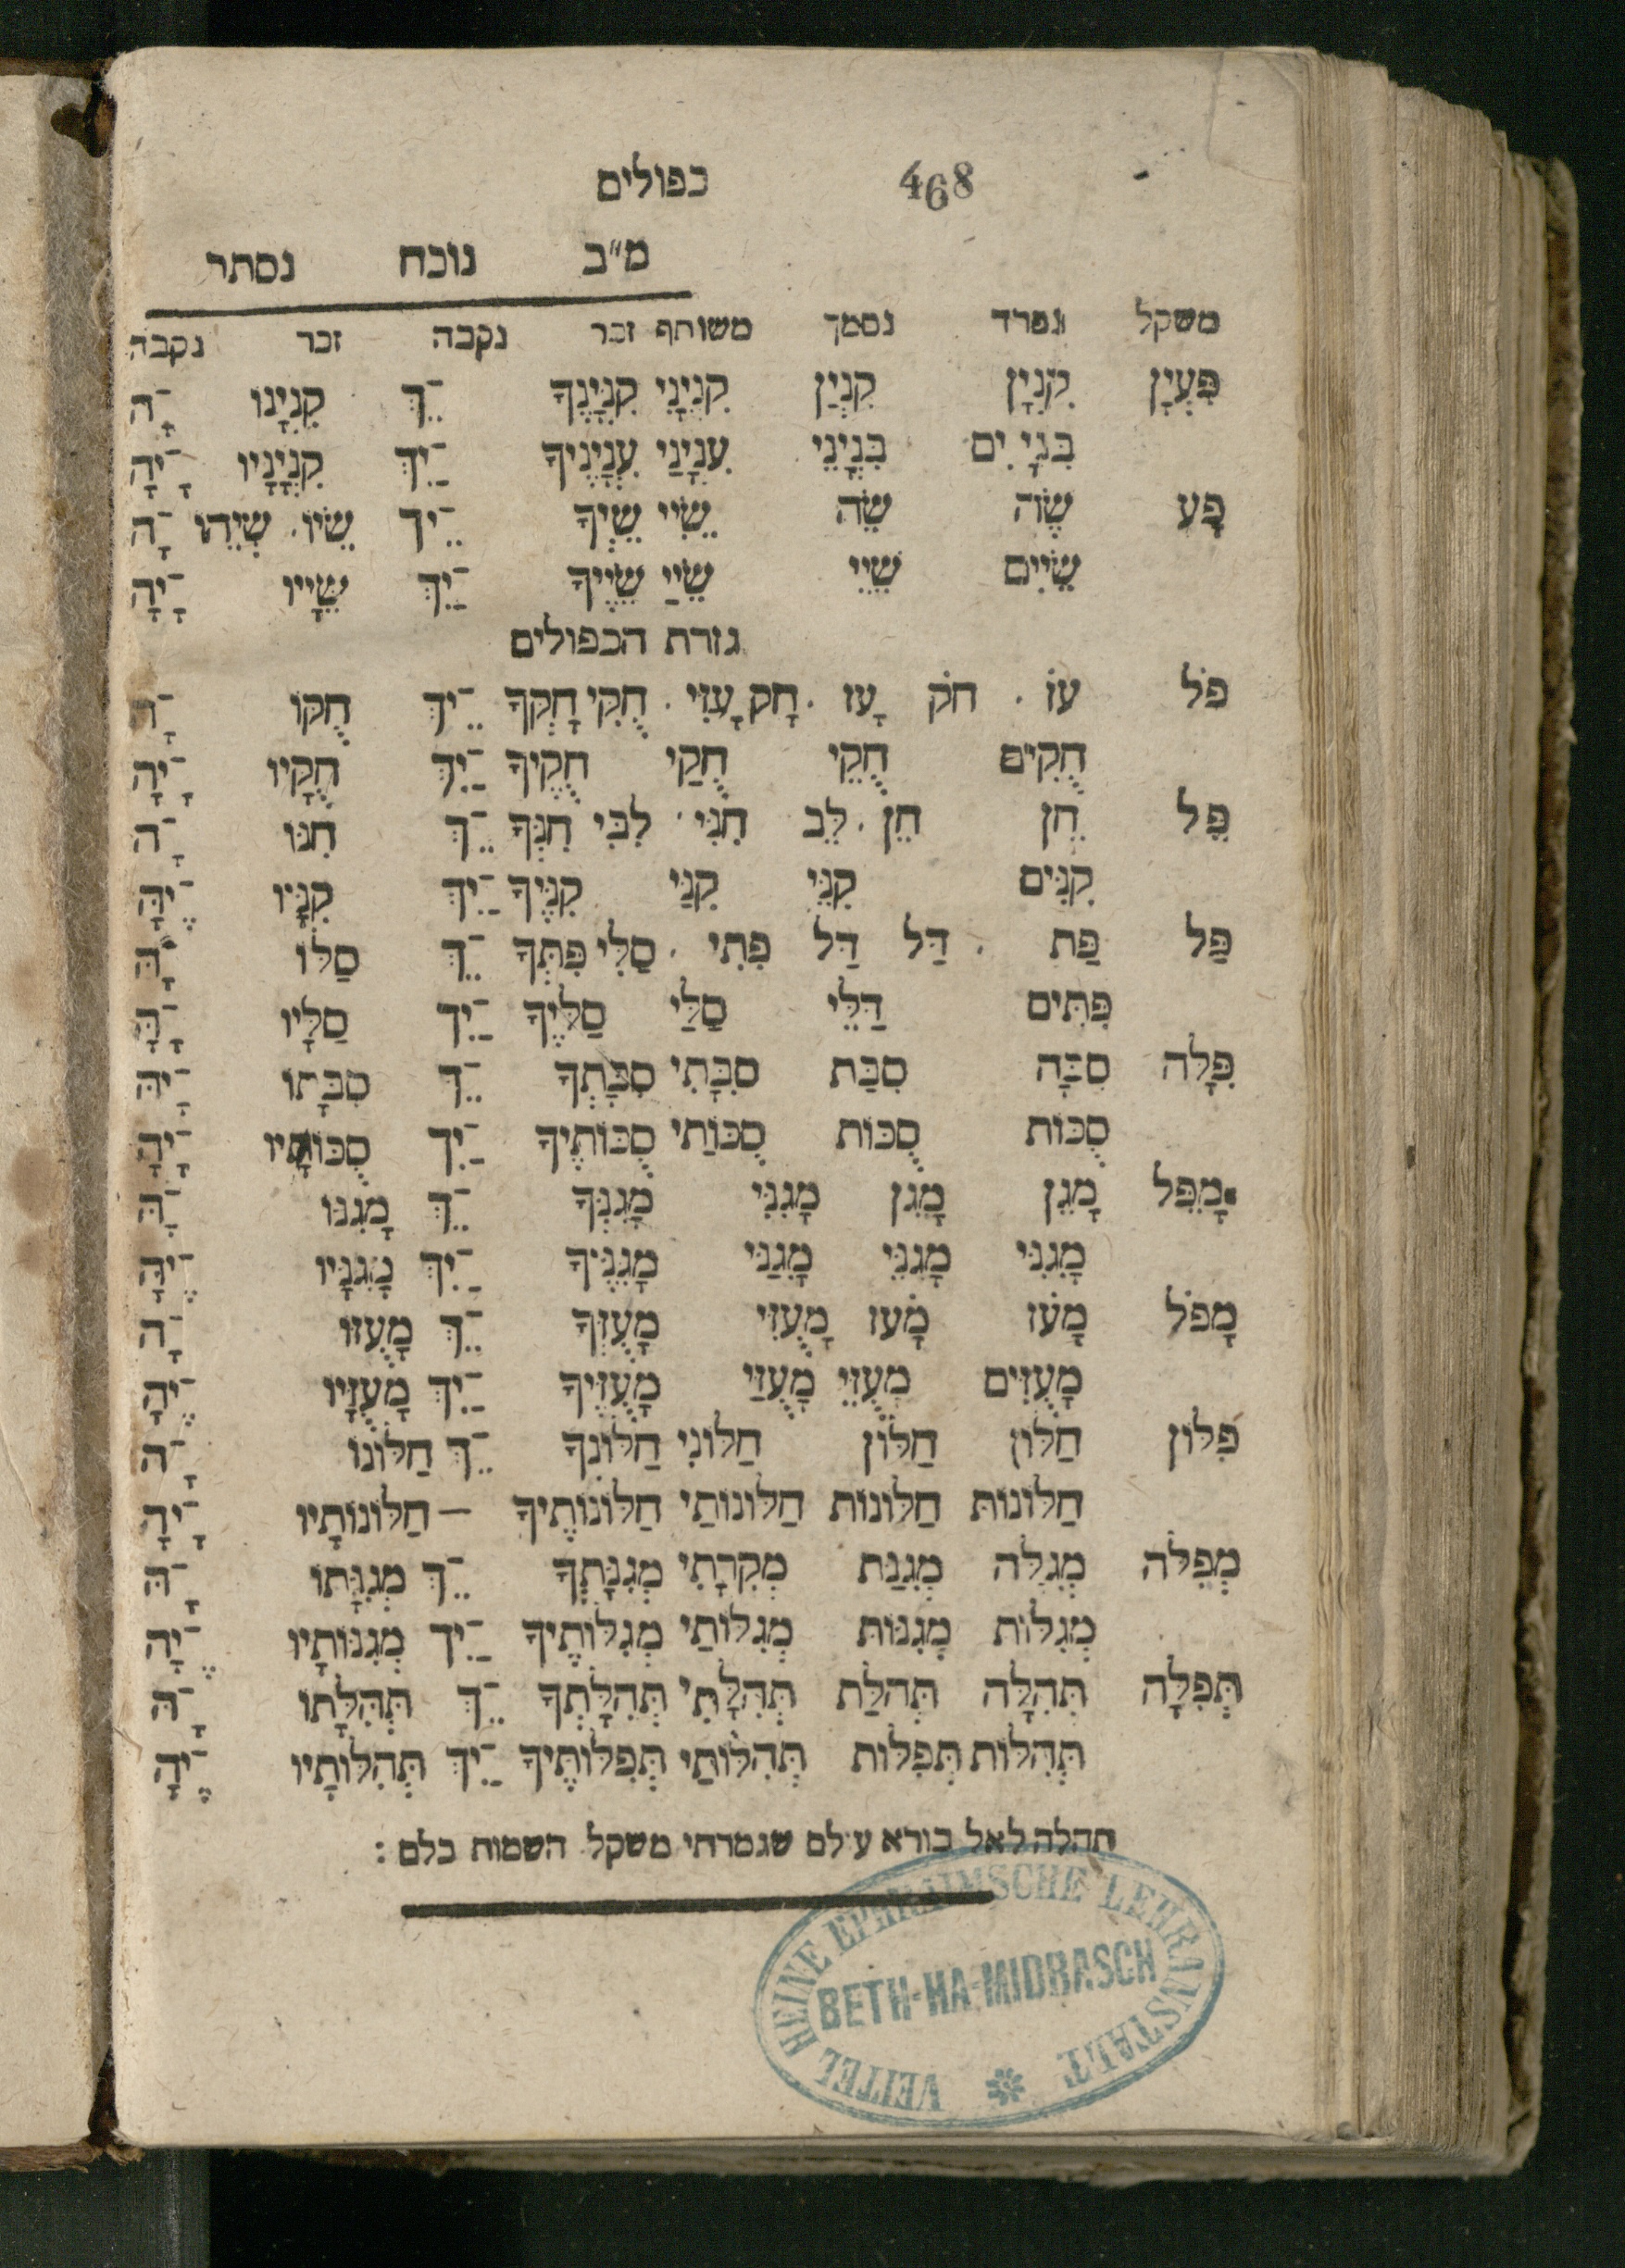 468 כפולים
מ״ב נוכח נסתר
משקל נפרד נסמך משותף זכר נקבה זכר נקבה
פִּעְיָן קִנְיָן קִנְיַן קִנְיָנִי קִנְיָנֶךָ ־ֵךְ קִנְיָנוֹ ־ָהּ
בִּנְיָ ִים בִּנְיָנֵי עִנְיָנַי עִנְיָנֶיךָ ־ַיִךְ קִנְיָנָיו ־ָיהָ
פֶּע שֶׂה שֵׂה שֵׂיִי שֵׂיְךָ ־ֵיךְ שֵׂיוֹ . שְׂיֵהוּ ־ָהּ
שֵׂיִים שֵׂיֵי שֵׂיַי שֵׂיֶיךָ ־ַיִךְ שֵׂיָיו ־ָיהָ
גזרת הכפולים
פֹּל עֹז . חֹק עָז . חָק עָזִּי . חֻקִּי חָקְךָ ־ֵיךְ חֻקּוֹ ־ָהּ
חֻקִּים חֻקֵּי חֻקַּי חֻקֶּיךָ ־ַיִךְ חֻקָּיו ־ָיהָ
פֵּל חֵן חֵן . לֵב חִנִּי . לִבִּי חִנְּךָ ־ֵךְ חִנּוֹ ־ָהּ
קִנִּים קִנֵּי קִנַּי קִנֶּיךָ ־ַיִךְ קִנָּיו ־ֶיהָ
פַּל פַּת . דַּל דַּל פִּתִּי . סַלִּי פִּתְּךָ ־ֵךְ סַלּוֹ ־ָהּ
פִּתִּים דַּלֵּי סַלַּי סַלֶּיךָ ־ַיִךְ סַלָּיו ־ָהָ
פִּלָּה סִבָּה סִבַּת סִבָּתִי סִבָּתְךָ ־ֵךְ סִבָּתוֹ ־ָיהּ
סֻכּוֹת סֻכּוֹת סֻכּוֹתַי סֻכּוֹתֶיךָ ־ַיִךְ סֻכּוֹתָיו ־ָיהָ
מָפֵּל מָגֵן מָגֵן מָגִנִּי מָגִנְּךָ ־ֵךְ מָגִנּוֹ ־ָהּ
מָגִנִּי מָגִנֵּי מָגִנַּי מָגִנֶּיךָ ־ַיִךְ מָגִנָּיו ־ֶיהָ
מָפֹּל מָעֹז מָעֹז מָעֻזִּי מָעֻזְּךָ ־ֵךְ מָעֻזּוֹ ־ָהּ
מָעֻזִּים מָעֻזֵּי מָעֻזַּי מָעֻזֶּיךָ ־ַיִךְ מָעֻזָּיו ־ֶיהָ
פִּלּוֹן חַלּוֹן חַלּוֹן חַלּוֹנִי חַלּוֹנְךָ ־ֵךְ חַלּוֹנוֹ ־ָהּ
חַלּוֹנוֹת חַלּוֹנוֹת חַלּוֹנוֹתַי חַלּוֹנוֹתֶיךָ — חַלּוֹנוֹתָיו ־ָיהָ
מְפִלָּה מְגִלָּה מְגִנַּת מְקִרָתִי מְגִנָּתְךָ ־ֵךְ מְגִנָּתוֹ ־ָהּ
מְגִלּוֹת מְגִנּוֹת מְגִלּוֹתַי מְגִלּוֹתֶיךָ ־ַיִךְ מְגִנּוֹתָיו ־ֶיהָ
תְּפִלָּה תְּהִלָּה תְּהִלַּת תְּהִלָּתִי תְּהִלָּתְךָ ־ֵךְ תְּהִלָּתוֹ ־ָהּ
תְּהִלּוֹת תְּפִלּוֹת תְּהִלּוֹתַי תְּפִלּוֹתֶיךָ ־ַיִךְ תְּהִלּוֹתָיו ־ֶיהָ
תהלה לאל בורא עולם שגמרתי משקל השמות כלם :
VEITEL HEINE EPHRAIMSCHE LEHRANSTALT
BETH-HA-MIDRASCH